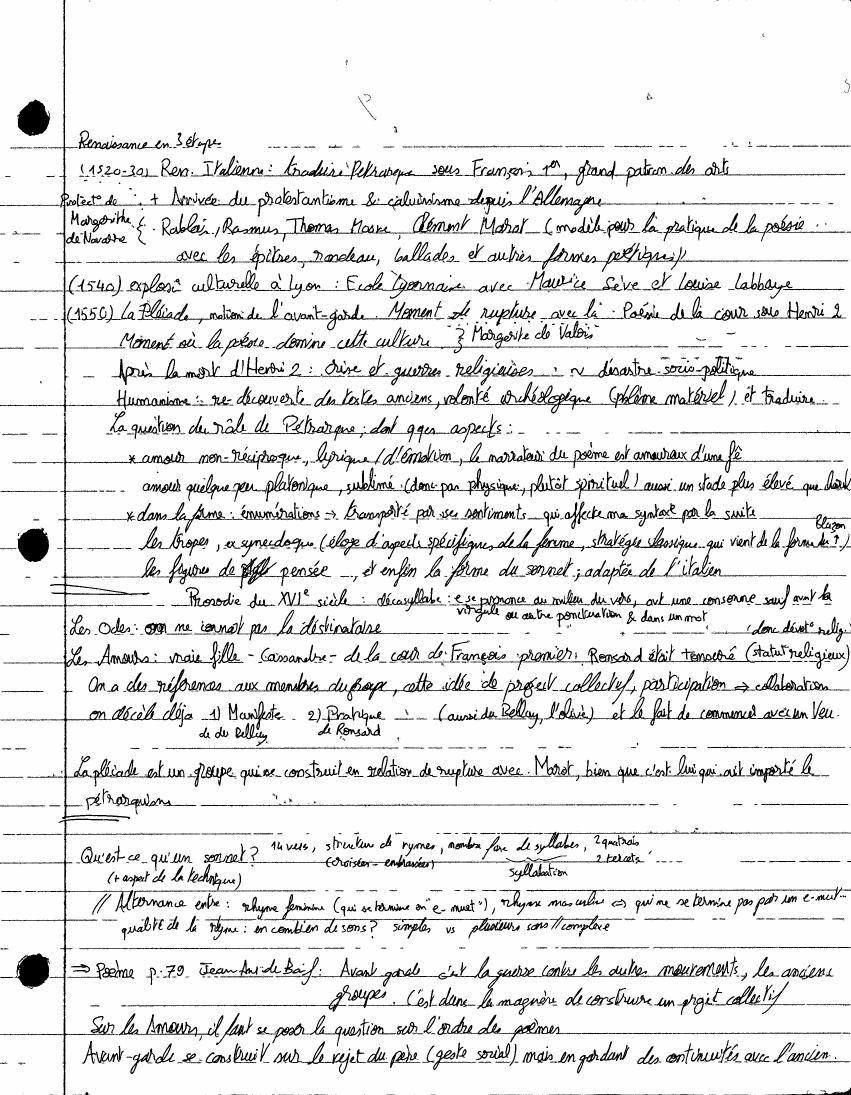 Renaissance en 3 étapes
(1520-30) Ren. Italienne : traduire Pétrarque sous François 1er, grand patron des arts
Protect° de + Arrivée du protestantisme & calvinisme depuis l'Allemagne
Margerithe de Navarre { Rablais, Rasmus, Thomas Moore, Clément Marot (modèle pour la pratique de la poésie
avec les épîtres, rondeau, ballades et autres formes poétiques)
(1540) explos° culturelle à Lyon : Ecole Lyonnaise avec Maurice Sève et Louise Labbaye
(1550) La Pléiade, notion de l'avant-garde. Moment de rupture avec la Poésie de la cour sous Henri 2
Moment où la poésie domine cette culture } Margerite de Valois
Après la mort d'Henri 2 : crise et guerres religiaises : ~ désastre socio-politique
Humanisme : re-découverte des textes anciens, volonté archéologique (phlème matériel) et traduire
La question du rôle de Pétrarque ; dont qqes aspects :
* amour non-réciproque, lyrique/d'émotion, le narrateur du poème est amoureux d'une fê
amour quelque peu platonique, sublimé (donc pas physique, plutôt spirituel) aussi un stade plus élevé que
* dans la forme : énumérations → transporté par ses sentiments qui affecte ma syntaxe par la suite
les tropes, ex synecdoque (éloge d'aspects spécifiques de la femme, stratégie classique qui vient de la forme du ↑) Blazon
les figures de pensée , et enfin la forme du sonnet ; adaptée de l'italien
Prosodie du XVIe siècle : décasyllabe : e se prononce au milieu du vers, avt une consonne sauf avant la
virgule ou autre ponctuation & dans un mot
Les Odes : on ne connait pas la déstinataire (donc dévot° relig
Les Amours : vraie fille - Cassandre - de la cour de François premier. Ronsard était tonsuré (statut religieux)
On a des références aux membres du groupe, cette idée de project collectif, participation → collaboration
on décèle déja 1) Manifeste 2) Pratique (aussi du Bellay, l'olive) et le fait de commencer avec un Veu.
de du Bellay de Ronsard
La pléiade est un groupe qui se construit en relation de rupture avec Marot, bien que c'est lui qui ait importé le
pétrarquism
Qu'est-ce qu'un sonnet? 14 vers, structure de rymes, nombre fixe de syllabes, 2 quatrais
(+ aspect de la technique) (croisées - embrassées) syllabation 2 tercets
// Alternance entre : rhyme feminine (qui se termine en "e-muet"), rhyme masculine ⇔ qui ne se termine pas par un e-muet
qualité de la rhyme : en combien de sons? simples vs plusieurs sons // complexe
⇒ Poème p.79 Jean Ant de Baïf : Avant garde c'est la guerre contre les autres mouvements, les anciens
groupes. C'est dans la magnère de construire un projet collectif
Sur les Amours, il faut se poser la question sur l'ordre des poèmes
Avant-garde se construit sur le rejet du père (geste social) mais en gardant des continuités avec l'ancien.